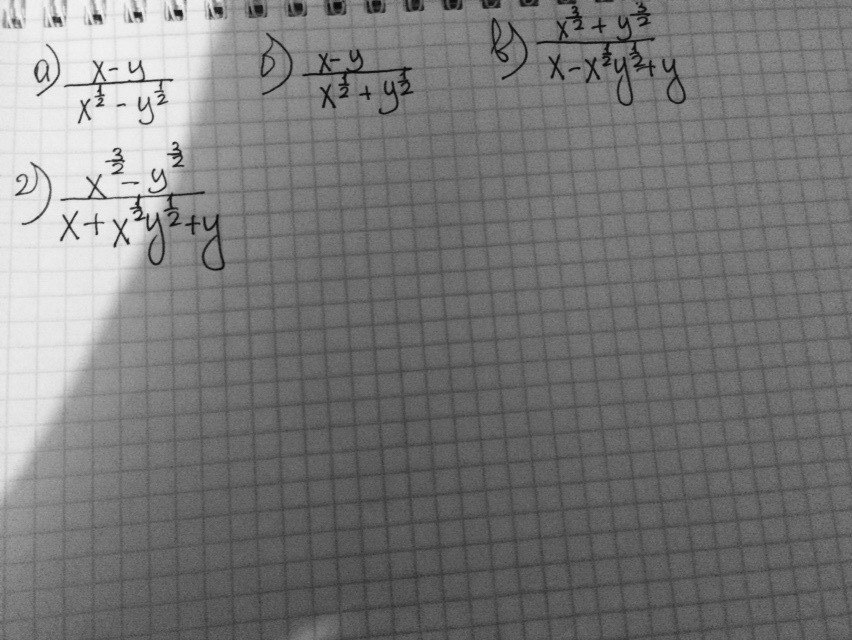 а) (x-y)/(x^(1/2) - y^(1/2)) б) (x-y)/(x^(1/2) + y^(1/2)) в) (x^(3/2) + y^(3/2))/(x-x^(1/2)y^(1/2)+y)
г) (x^(3/2) - y^(3/2))/(x+x^(1/2)y^(1/2)+y)